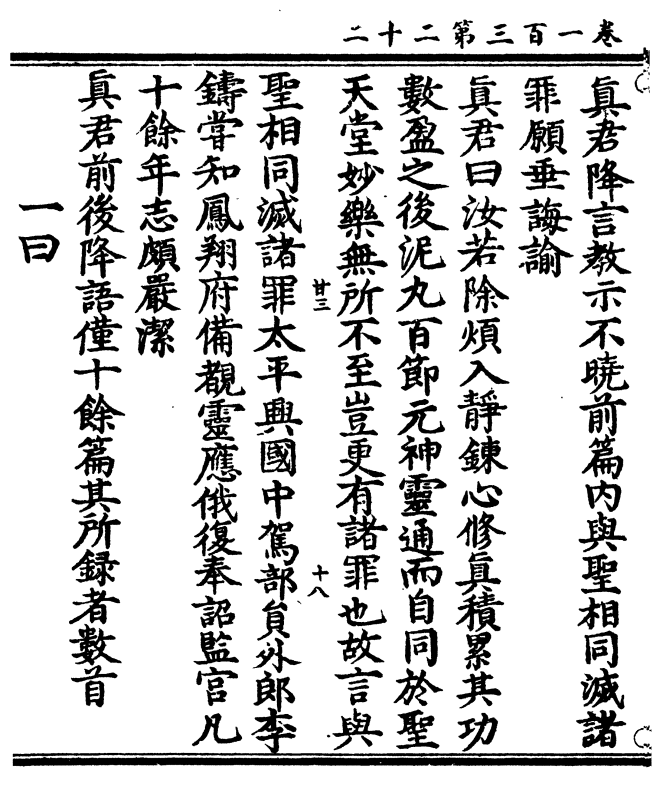 卷一百三第二十二
眞君降言教示不曉前篇内與聖相同滅諸
罪願垂誨諭
眞君曰汝若除煩入靜鍊心修眞積累其功
數盈之後泥丸百節元神靈通而自同於聖
天堂妙樂無所不至豈更有諸罪也故言與
廿三
十八
聖相同滅諸罪太平興國中駕部員外郎李
鑄嘗知鳳翔府備覩靈應俄復奉詔監宮凡
十餘年志頗嚴潔
眞君前後降語僅十餘篇其所録者數首
一曰